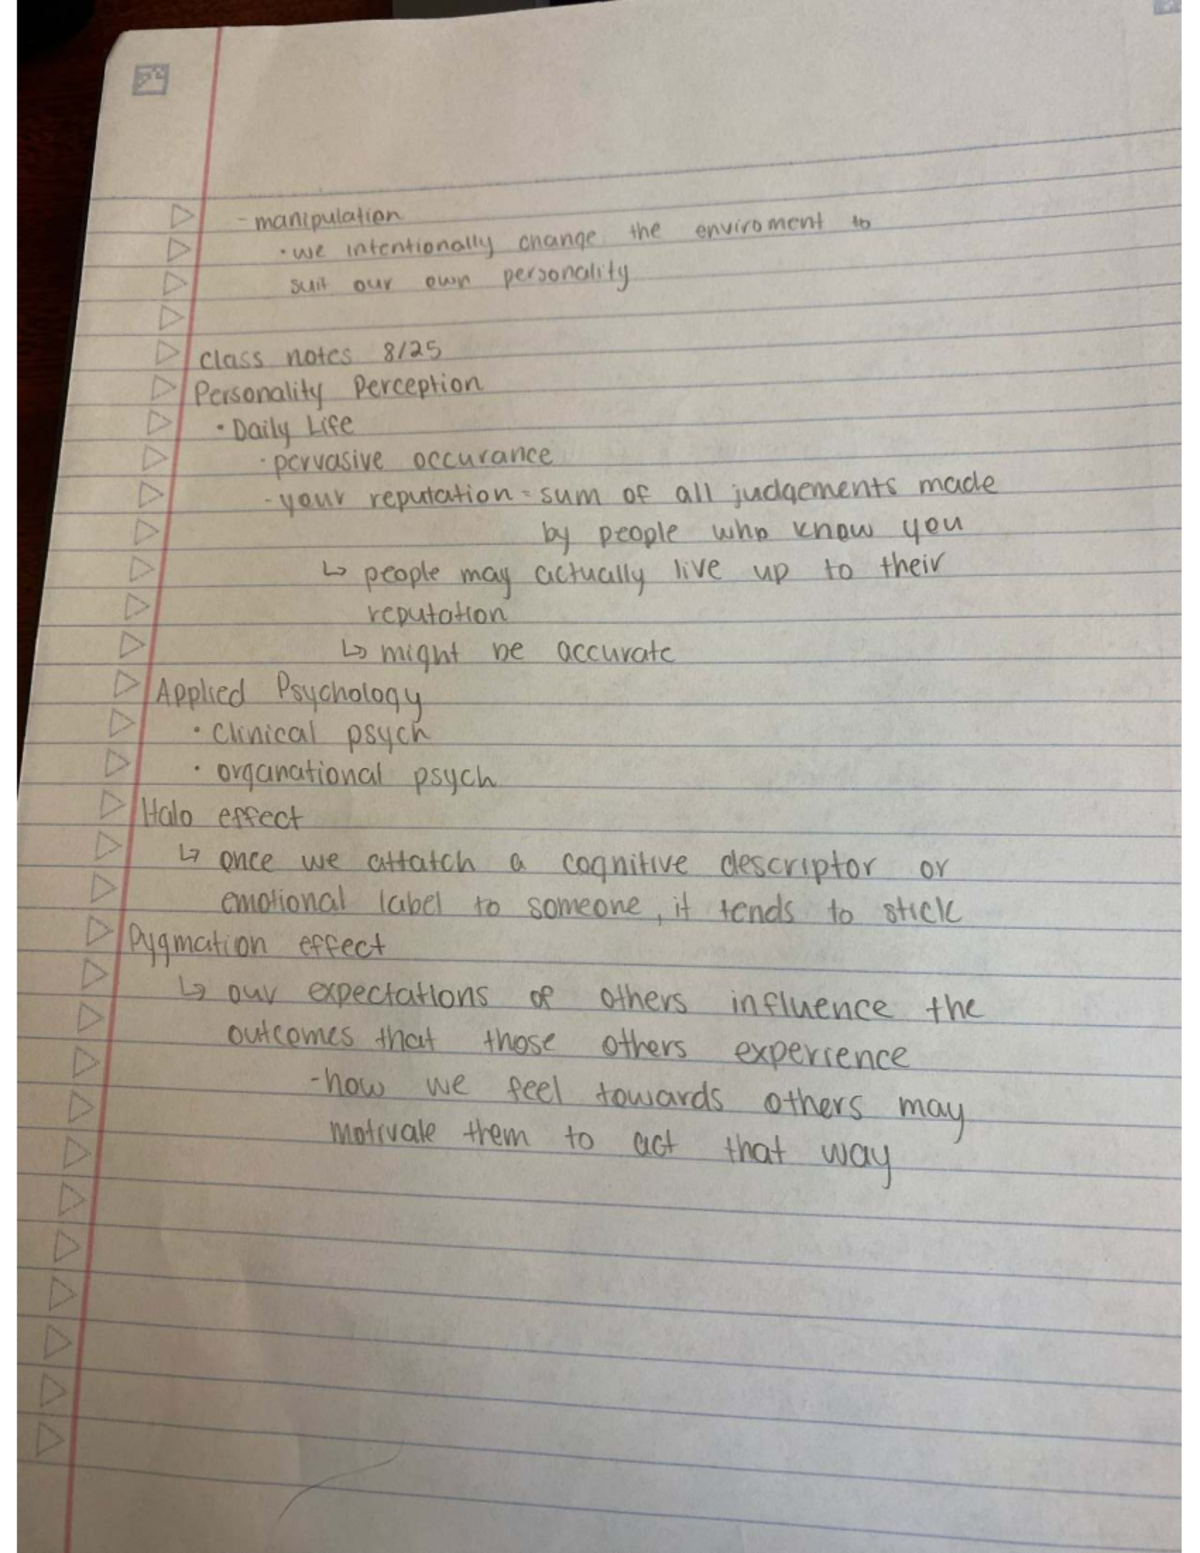 - manipulation
· we intentionally change the enviroment to
suit our own personality
class notes 8/25
Personality Perception
· Daily Life
· pervasive occurance
- your reputation = sum of all judgements made
by people who know you
↳ people may actually live up to their
reputation
↳ might be accurate
Applied Psychology
· Clinical psych
· organational psych
Halo effect
↳ once we attatch a cognitive descriptor or
emotional label to someone, it tends to stick
Pygmation effect
↳ our expectations of others influence the
outcomes that those others experience
- how we feel towards others may
motivate them to act that way